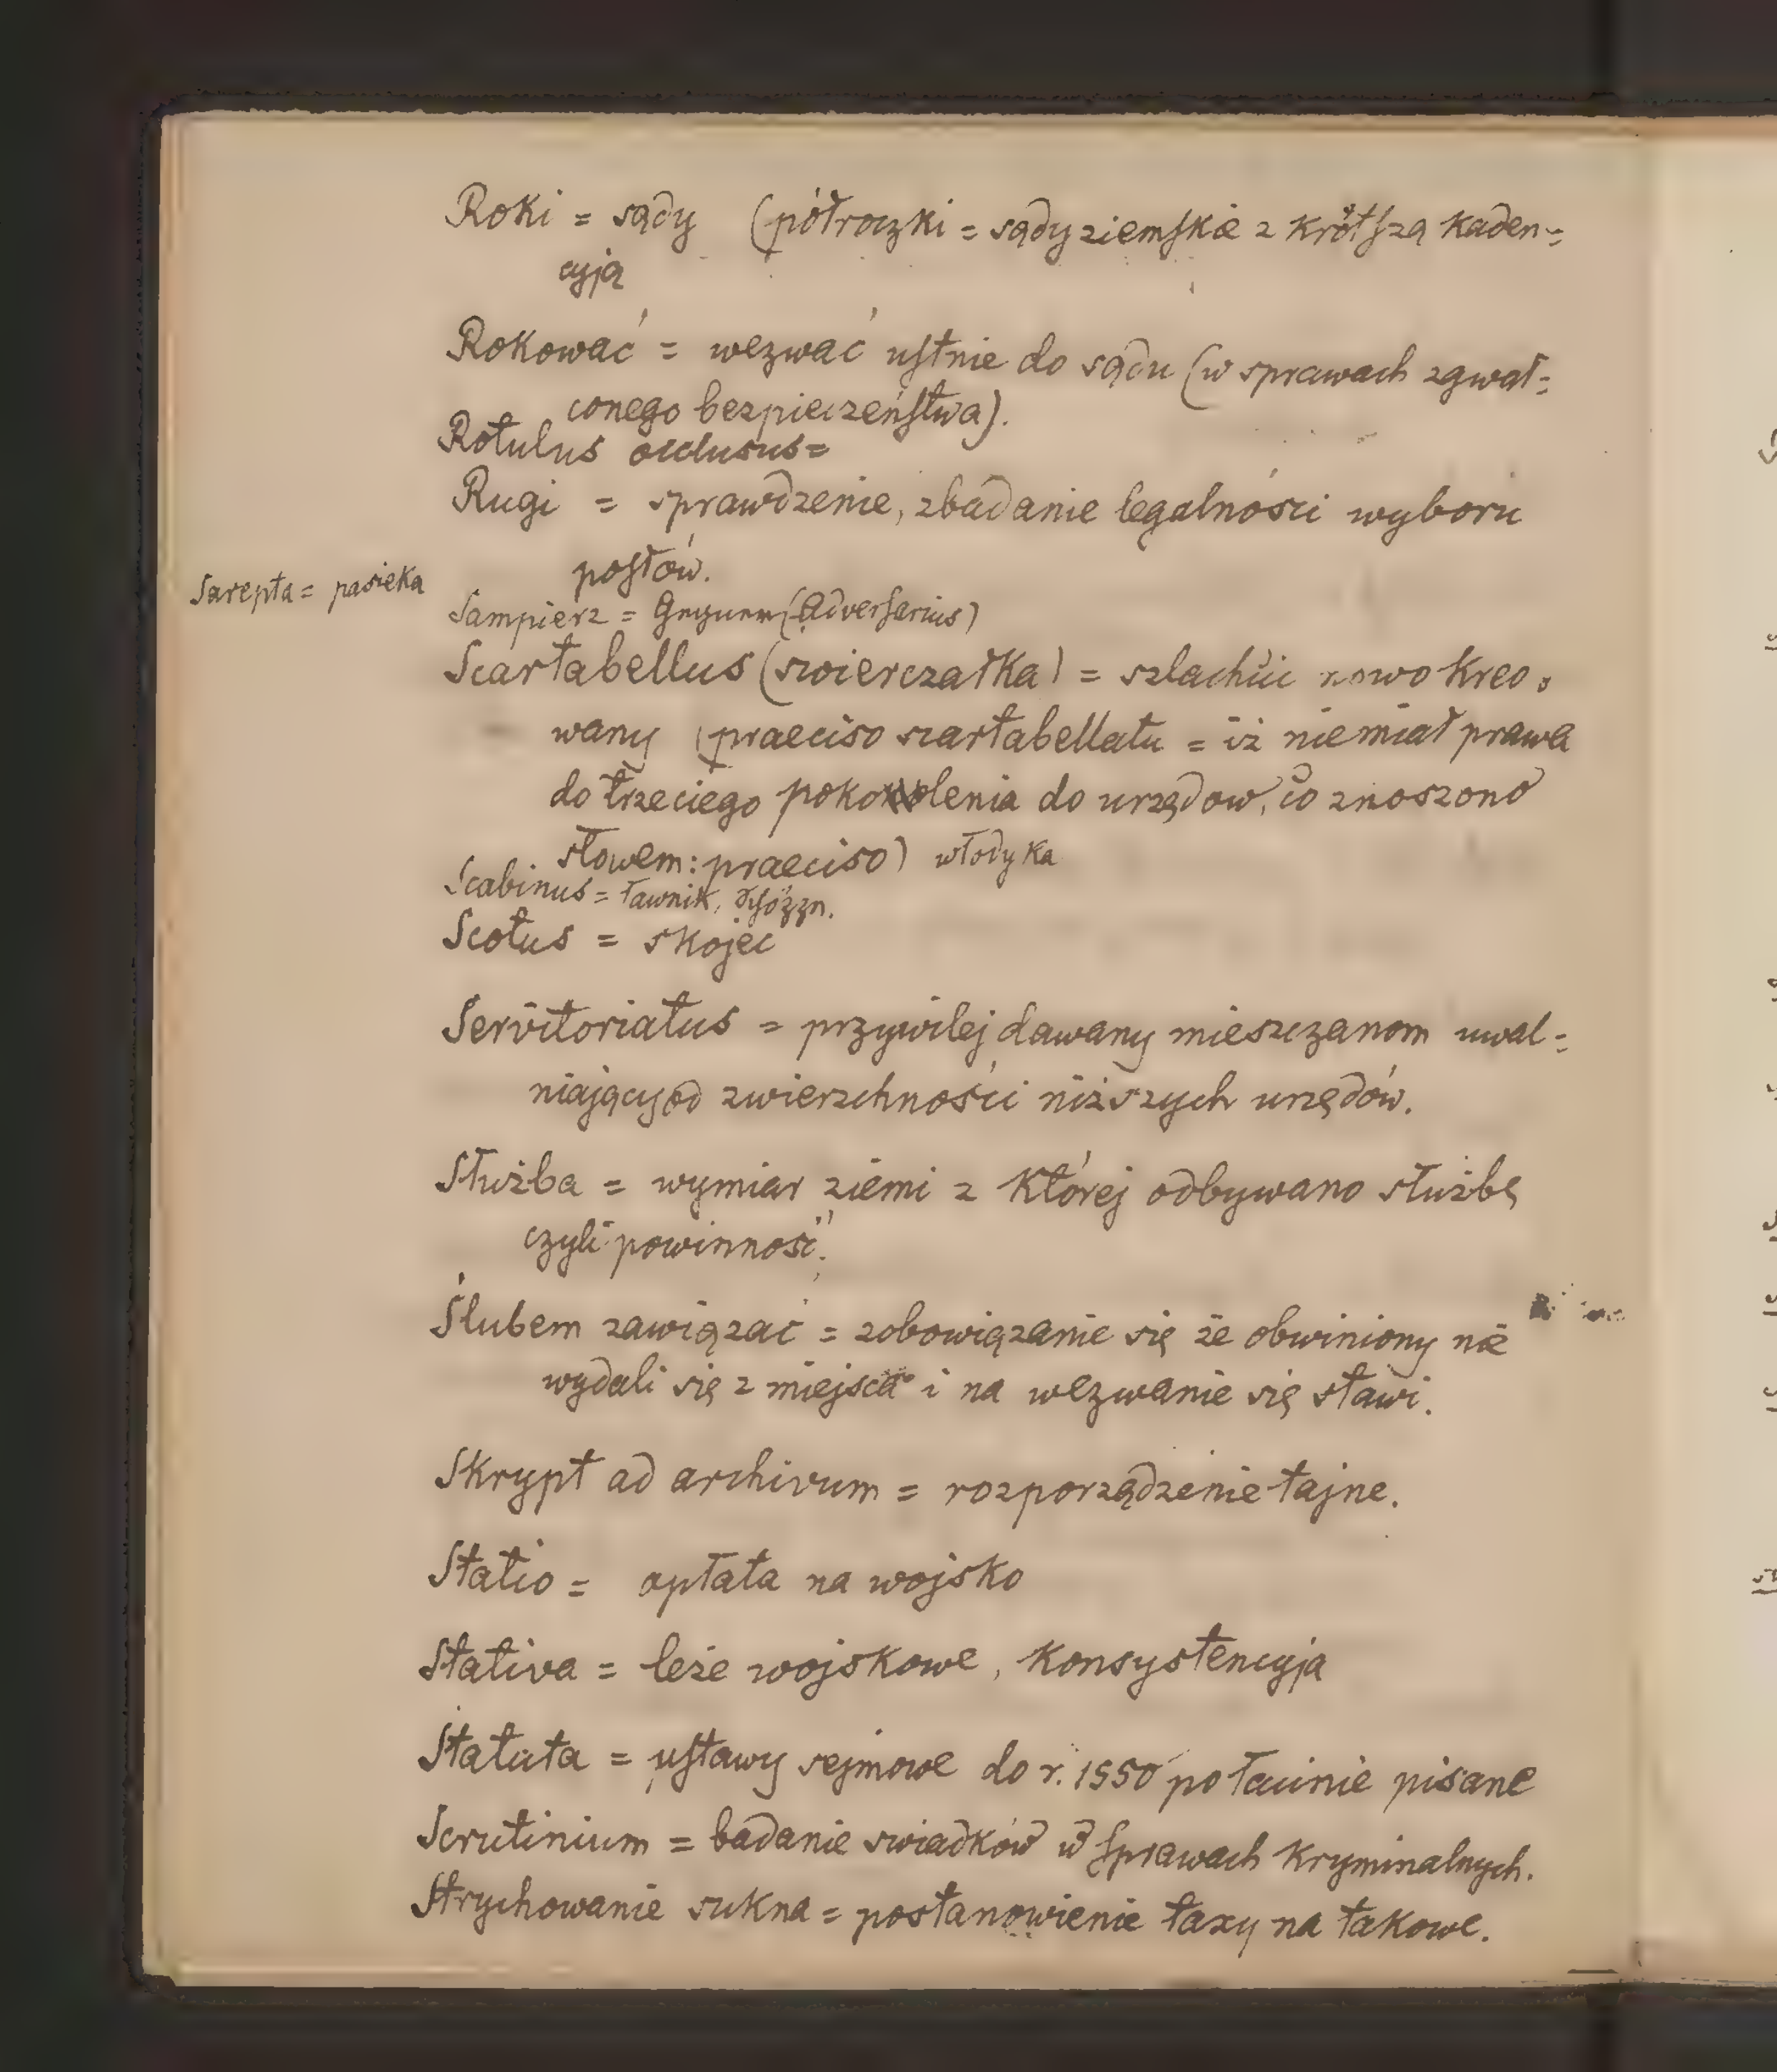 Roki = sądy (półroczki = sądy ziemskie z krótszą kaden=
cyją
Rokować = wezwać ustnie do sądu (w sprawach zgwał=
conego bezpieczeństwa).
Rotulus occlusus =
Rugi = sprawdzenie, zbadanie legalności wyboru
posłów.
Sarepta = pasieka
Sampierz = (Adversarius)
Scartabellus (świerczałka) = szlachcic nowo kreo=
wany (praeciso scartabellatu = iż nie miał prawa
do trzeciego pokolenia do urzędow, co znoszono
słowem: praeciso) włodyka
Scabinus = ławnik,
Scotus = skojec
Servitoriatus = przywilej dawany mieszczanom uwal=
niający od zwierzchności niższych urzędów.
Służba = wymiar ziemi z której odbywano służbę
czyli powinność.
Ślubem zawiązać = zobowiązanie się że obwiniony nie
wydali się z miejsca i na wezwanie się stawi.
Skrypt ad archivum = rozporządzenie tajne.
Statio = opłata na wojsko
Stativa = leże wojskowe, konsystencyja
Statuta = ustawy sejmowe do r. 1550 po łacinie pisane
Scrutinium = badanie swiadków w sprawach kryminalnych.
Strychowanie sukna = postanowienie taxy na takowe.